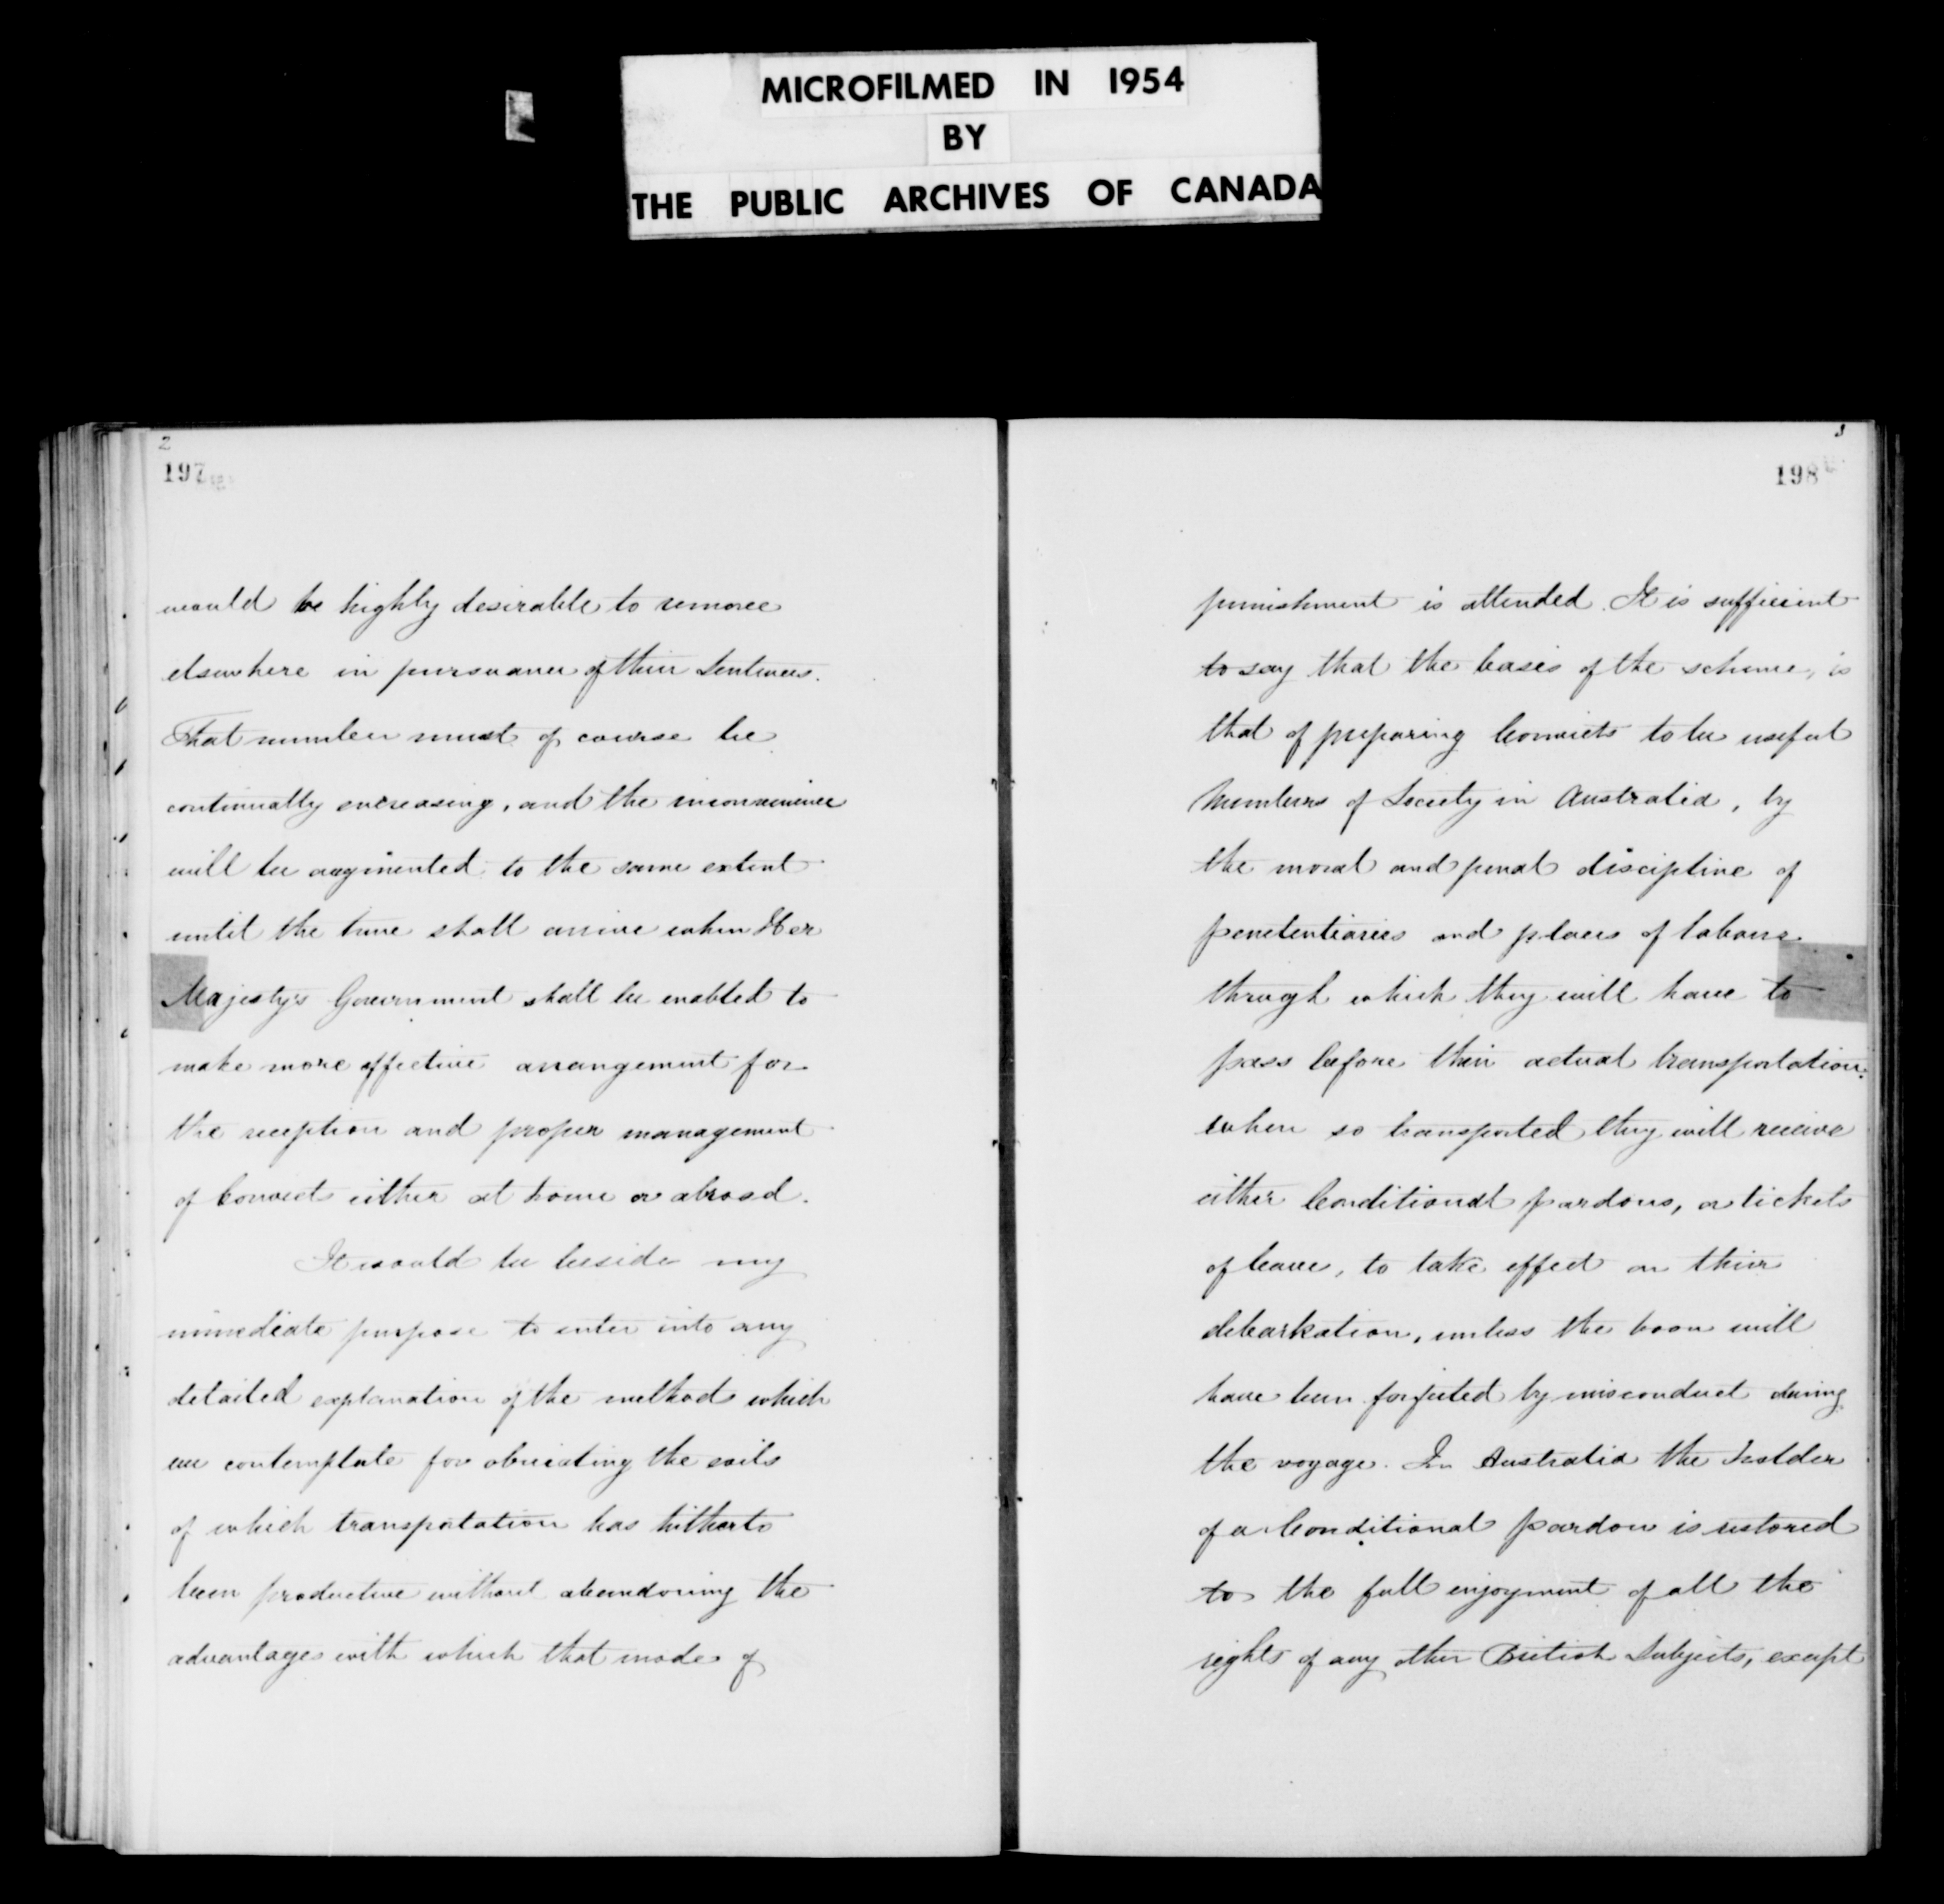 MICROFILMED IN 1954
BY
THE PUBLIC ARCHIVES OF CANADA
2
197
would be highly desirable to remove
elsewhere in pursuance of their Sentences.
That number must of course be
continually encreasing, and the inconvenience
will be augmented to the same extent
until the time shall arrive when Her
Majesty's Government shall be enabled to
make more effective arrangement for
the reception and proper management
of Convicts either at home or abroad.
It would be beside my
immediate purpose to enter into any
detailed explanation of the method which
we contemplate for obviating the evils
of which transportation has hitherto
been productive without abandoning the
advantages with which that mode of
3
198
punishment is attended. It is sufficient
to say that the basis of the scheme, is
that of preparing Convicts to be useful
Members of Society in Australia, by
the moral and penal discipline of
penetentiaries and places of labour
through which they will have to
pass before their actual transportation.
when so transported they will receive
either Conditional pardons, or tickets
of leave, to take effect on their
debarkation, unless the boon will
have been forfeited by misconduct during
the voyage. In Australia the holder
of a Conditional pardon is restored
to the full enjoyment of all the
rights of any other British Subjects, except